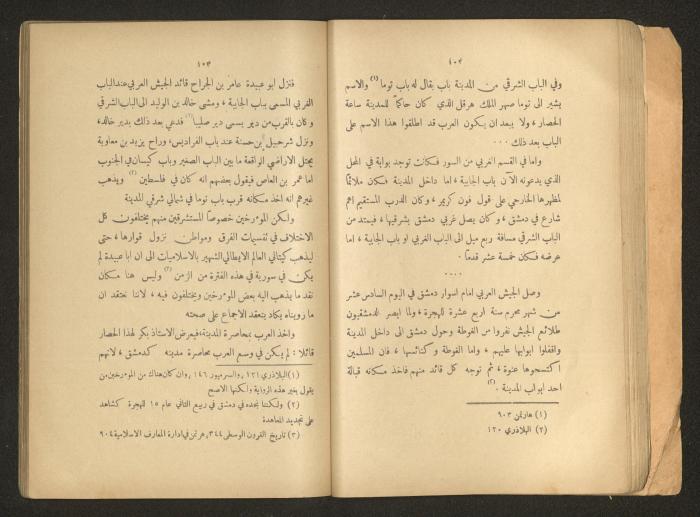 ١٠٢
وفي الباب الشرقي من المدينة باب يقال له باب توما (١) والاسم
يشير الى توما صهر الملك هرقل الذي كان حاكماً للمدينة ساعة
الحصار، ولا يبعد ان يكون العرب قد اطلقوا هذا الاسم على
الباب بعد ذلك ...
واما في القسم الغربي من السور فكانت توجد بوابة في المحل
الذي يدعونه الآن باب الجابية، اما داخل المدينة فكان ملائماً
لمظهرها الخارجي على قول فون كريمر، وكان الدرب المستقيم اهم
شارع في دمشق، وكان يصل غربي دمشق بشرقيها، فيمتد من
الباب الشرقي مسافة ربع ميل الى الباب الغربي او باب الجابية، اما
عرضه فكان خمسة عشر قدماً.
....
وصل الجيش العربي امام اسوار دمشق في اليوم السادس عشر
من شهر محرم سنة اربع عشرة للهجرة، ولما ابصر الدمشقيون
طلائع الجيش نفروا من الغوطة وحول دمشق الى داخل المدينة
واقفلوا ابوابها عليهم، واما الغوطة وكنائسها، فان المسلمين
اكتسحوها عنوة، ثم توجه كل قائد منهم فاخذ مكانه قبالة
احد ابواب المدينة. (٢)
(١) هارتمن ٩٠٣
(٢) البلاذري ١٢٠
١٠٣
فنزل ابو عبيدة عامر بن الجراح قائد الجيش العربي عند الباب
الغربي المسمى بباب الجابية، ومشى خالد بن الوليد الى الباب الشرقي
وكان بالقرب من دير يسمى دير صليبا (١) فدعي بعد ذلك بدير خالد،
ونزل شرحبيل بن حسنة عند باب الفراديس، وراح يزيد بن معاوية
يحتل الاراضي الواقعة ما بين الباب الصغير وباب كيسان في الجنوب
اما عمر بن العاص فيقول بعضهم انه كان في فلسطين (٢) ويذهب
غيرهم انه اخذ مكانه قرب باب توما في شمالي شرقي المدينة
ولكن المؤرخين خصوصاً المستشرقين منهم يختلفون كل
الاختلاف في تقسيمات الفرق ومواطن نزول قوادها، حتى
ليذهب كيتاني العالم الايطالي الشهير بالاسلاميات الى ان ابا عبيدة لم
يكن في سورية في هذه الفترة من الزمن (٣) وليس هنا مكان
نقد ما يذهب اليه بعض المؤرخين ويختلفون فيه، لاننا نعتقد ان
ما رويناه يكاد ينعقد الاجماع على صحته
واخذ العرب بمحاصرة المدينة، فيعرض الاستاذ بكر لهذا الحصار
قائلا: لم يكن في وسع العرب محاصرة مدينة كدمشق، لانهم
(١) البلاذري ١٢١، والسر ميور ١٤٦، وان كان هناك من المؤرخين من
يقول بغير هذه الرواية ولكنها الاصح
(٢) ولكننا نجده في دمشق في ربيع الثاني عام ١٥ للهجرة كشاهد
على تجديد المعاهدة
(٣) تاريخ القرون الوسطى ٣٤٤، هرتمن في ادارة المعارف الاسلامية ٩٠٤